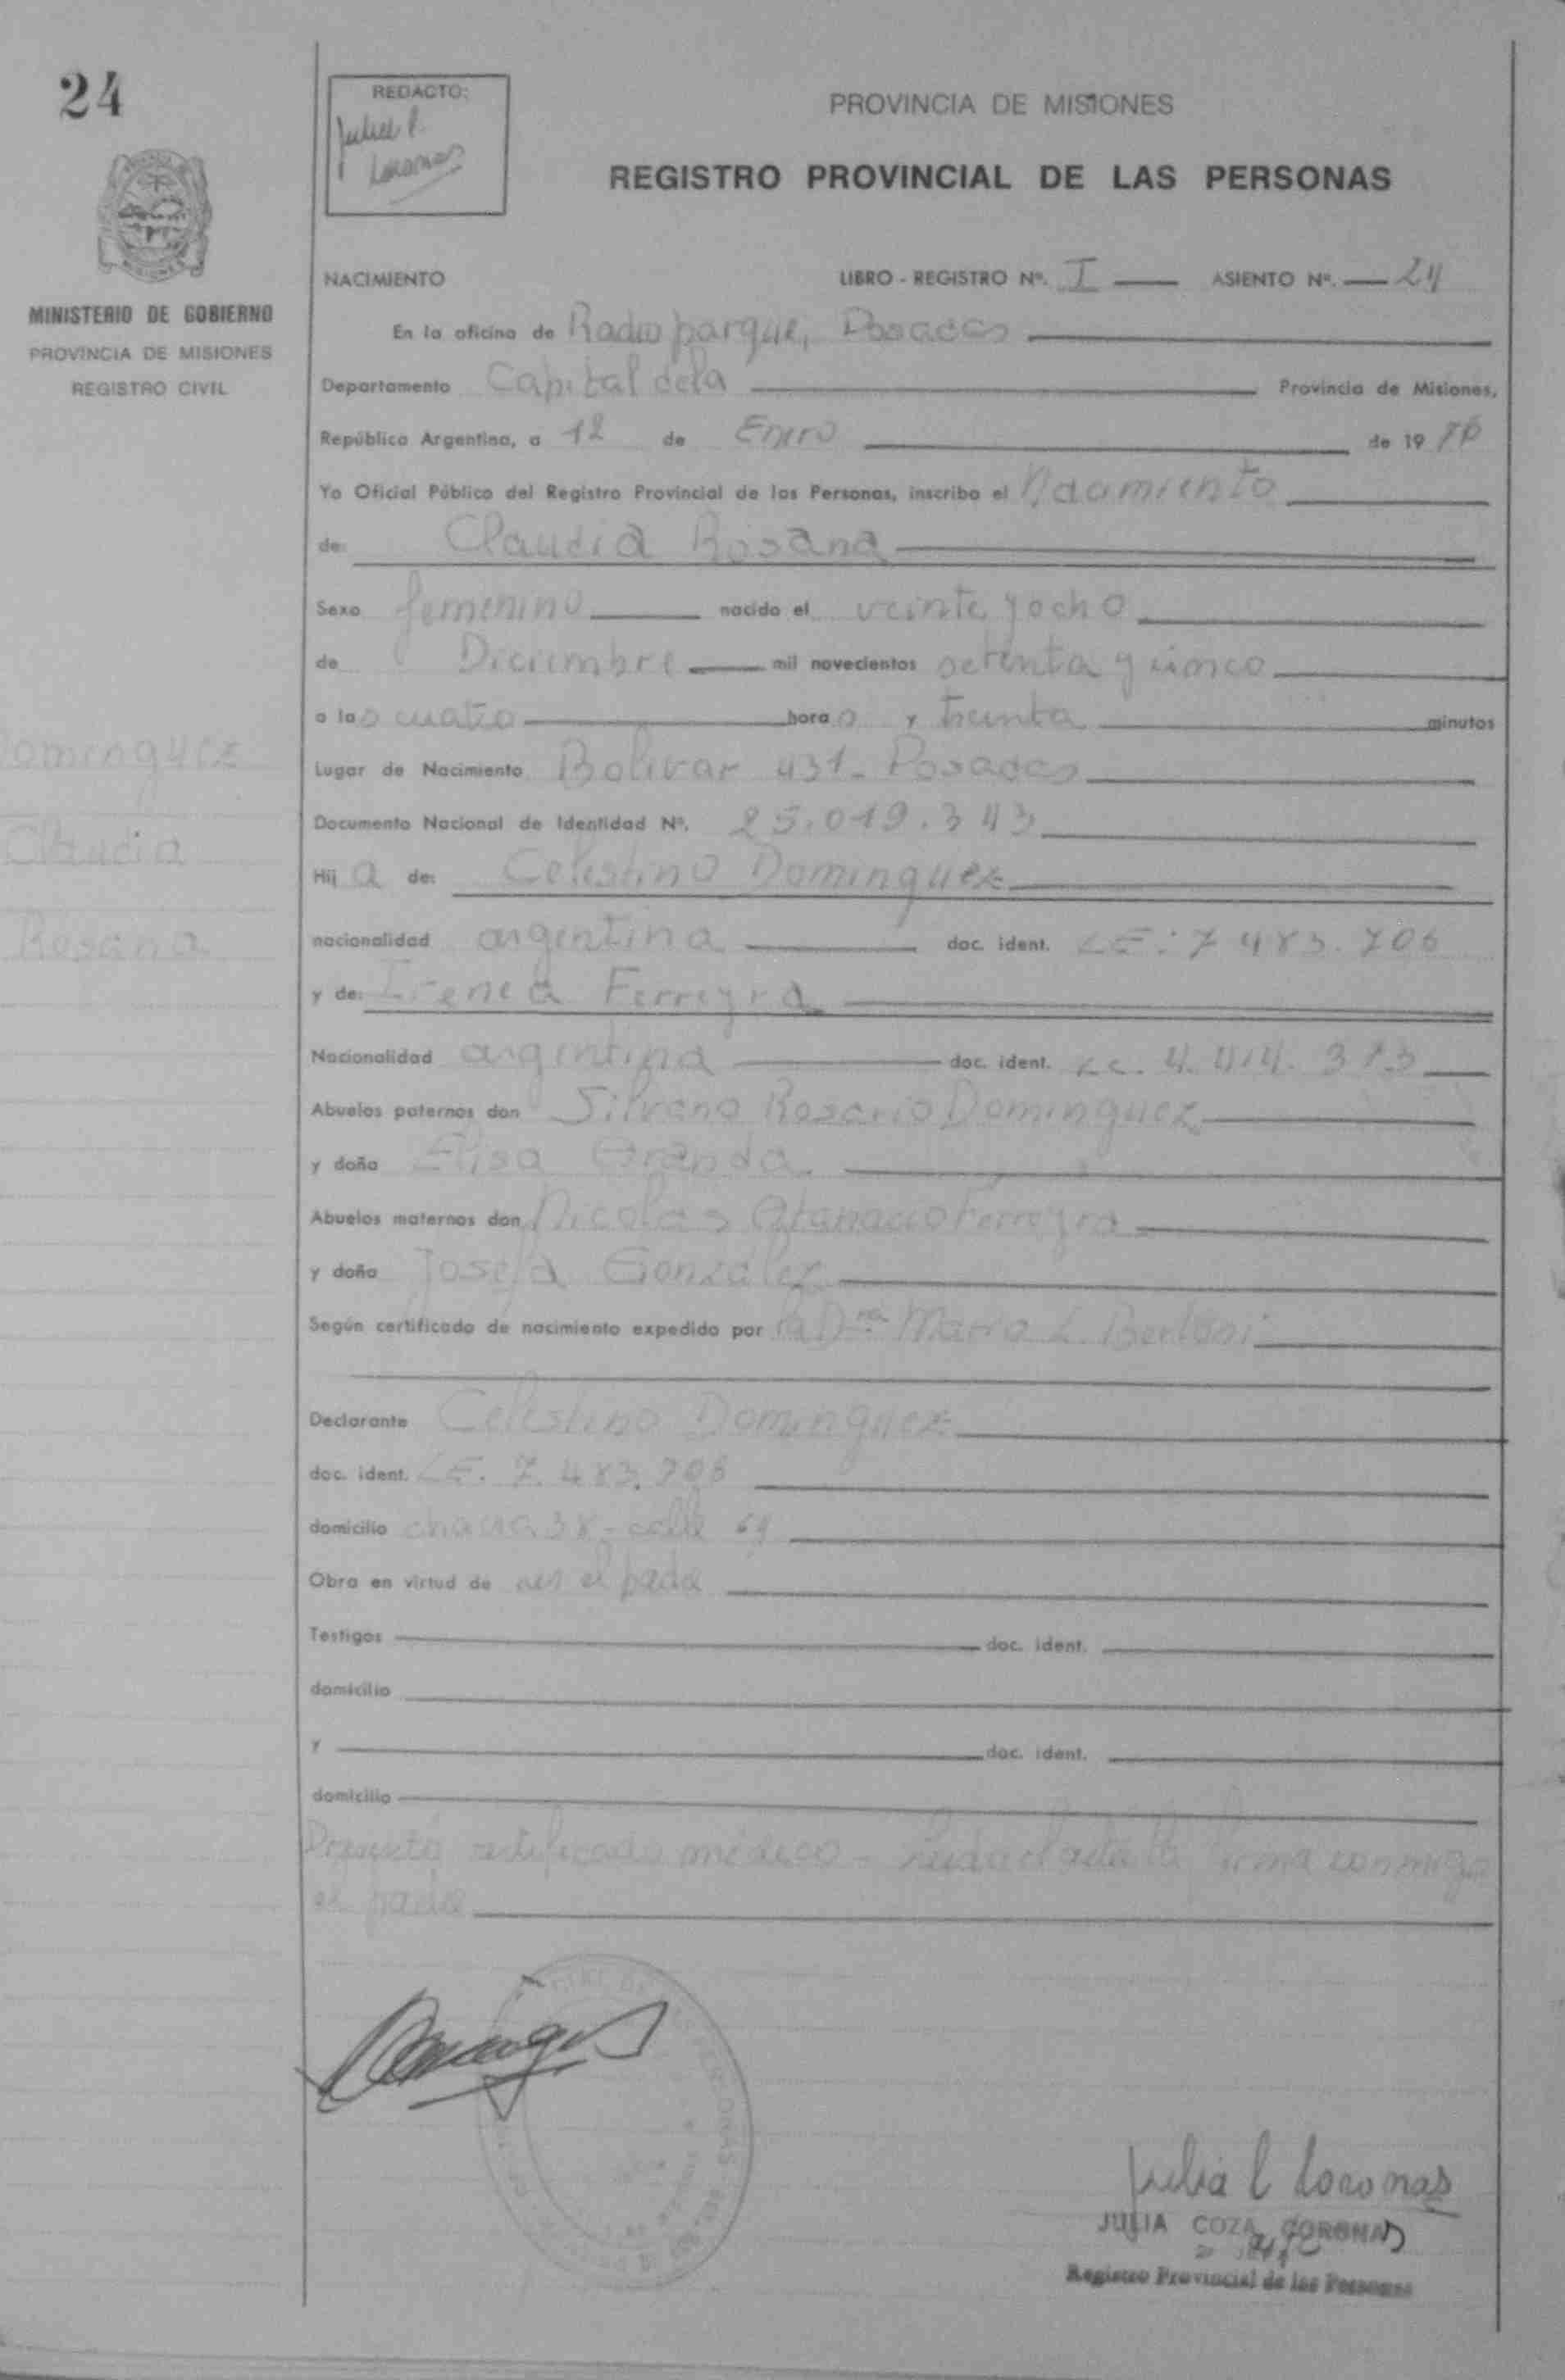 24
REDACTO:
Julia C.
Coronas
PROVINCIA DE MISIONES
REGISTRO PROVINCIAL DE LAS PERSONAS
MINISTERIO DE GOBIERNO
PROVINCIA DE MISIONES
REGISTRO CIVIL
NACIMIENTO LIBRO - REGISTRO Nº. I ASIENTO Nº. 24
En la oficina de Radioparque, Posadas
Departamento Capital de la Provincia de Misiones,
República Argentina, a 12 de Enero de 19 76
Yo Oficial Público del Registro Provincial de las Personas, inscribo el Nacimiento
de: Claudia Rosana
Sexo femenino nacido el veinte y ocho
de Diciembre mil novecientos setenta y cinco
a las cuatro horas y treinta minutos
Dominguez
Claudia
Rosana
Lugar de Nacimiento Bolivar 431 - Posadas
Documento Nacional de Identidad Nº. 25.019.343
Hij a de: Celestino Dominguez
nacionalidad argentina doc. ident. LE: 7 483.706
y de: Irenea Ferreyra
Nacionalidad argentina doc. ident. L.C. 4.414.373
Abuelos paternos don Silvano Rosario Dominguez
y doña Elisa Granda
Abuelos maternos don Nicolas Atanacio Ferreyra
y doña Josefa González
Según certificado de nacimiento expedido por la Dra Maria L Bertoni
Declarante Celestino Dominguez
doc. ident. LE. 7.483.706
domicilio chacra 38 - calle 64
Obra en virtud de ser el padre
Testigos doc. ident.
domicilio
y doc. ident.
domicilio
Presentó certificado médico - Leida el acta la firma conmigo
el padre
Julia C Coronas
JULIA COZA CORONAS
Registro Provincial de las Personas